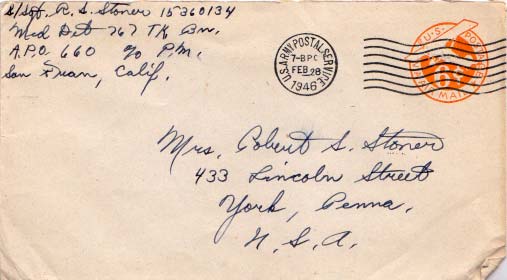 S/Sgt. R. S. Stoner 15360134
Med Det 767 Tk Bn.
A.P.O. 660 c/o P.M.
San Fran, Calif.
U.S. ARMY POSTAL SERVICE
7-8 PC
FEB 28
1946
U.S. POSTAGE
AIR MAIL
6¢
Mrs. Robert S. Stoner
433 Lincoln Street
York, Penna.
U. S. A.